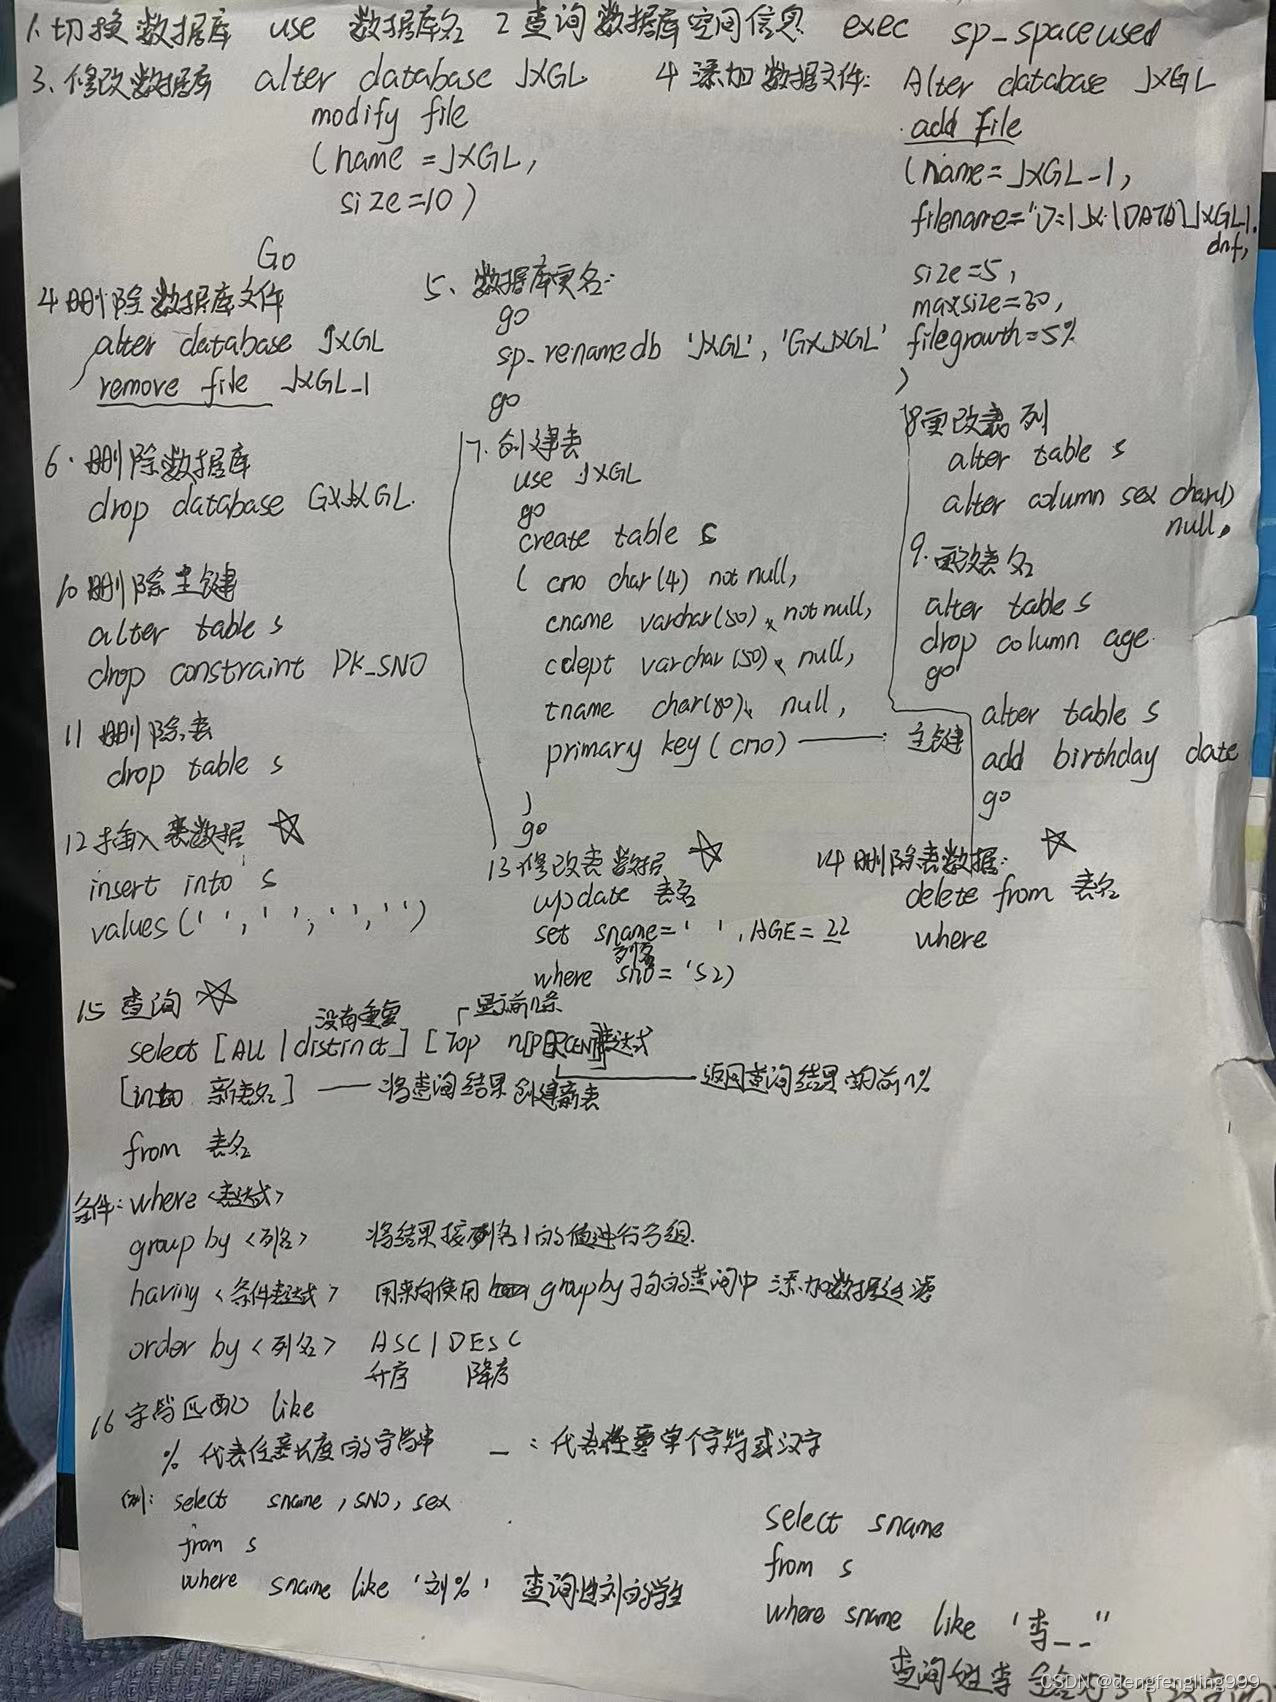 1.切换数据库 use 数据库名 2查询数据库空间信息 exec sp_spaceused
3、修改数据库 alter database JXGL
modify file
(name=JXGL,
size=10)
Go
4 添加数据文件: Alter database JXGL
add File
(name=JXGL-1,
size=5,
maxsize=30,
filegrowth=5%
)
4 删除数据库文件
alter database JXGL
remove file JXGL_1
5、数据库更名:
go
sp_renamedb 'JXGL', 'GXJXGL'
go
6.删除数据库
drop database GXJXGL.
7.创建表
use JXGL
go
create table s
( cno char(4) not null,
cname varchar(50), not null,
cdept varchar(50), null,
tname char(80), null,
primary key(cno) —— 主键
)
go
8更改表列
alter table s
alter column sex char(1)
null,
9.更改表名
alter table s
drop column age
go
alter table s
add birthday date
go
10删除主键
alter table s
drop constraint PK_SNO
11 删除表
drop table s
12插入表数据 ☆
insert into s
values(' ',' ',' ',' ')
13修改表数据 ☆
update 表名
set sname=' ',AGE=22
列名
where sno='S2)
14删除表数据: ☆
delete from 表名
where
15 查询 ☆
没有重复 显示前n条
select [ALL|distinct] [Top n[PERCENT]表达式
返回查询结果的前n%
[into 新表名] —— 将查询结果创建新表
from 表名
条件:where<表达式>
group by<列名> 将结果按列名1的值进行分组.
having<条件表达式> 用来向使用 group by子句的查询中添加数据过滤
order by<列名> ASC|DESC
升序 降序
16 字符匹配 like
% 代表任意长度的字符串 _:代表任意单个字符或汉字
例: select sname,SNO,sex
from s
where sname like '刘%' 查询姓刘的学生
select sname
from s
where sname like '李__"
查询姓李
CSDN @dengfengling999